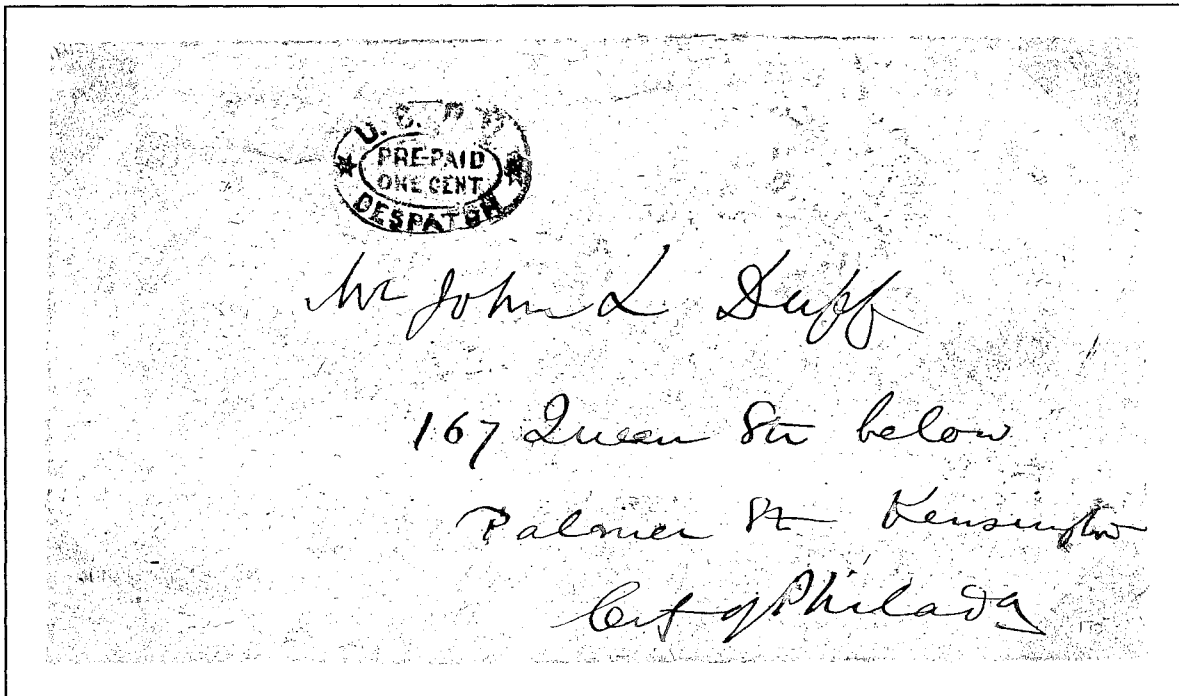 U. S. P. O.
PRE-PAID
ONE CENT
DESPATCH
Mr John L Duff
167 Queen St below
Palmer St Kensington
City of Philada